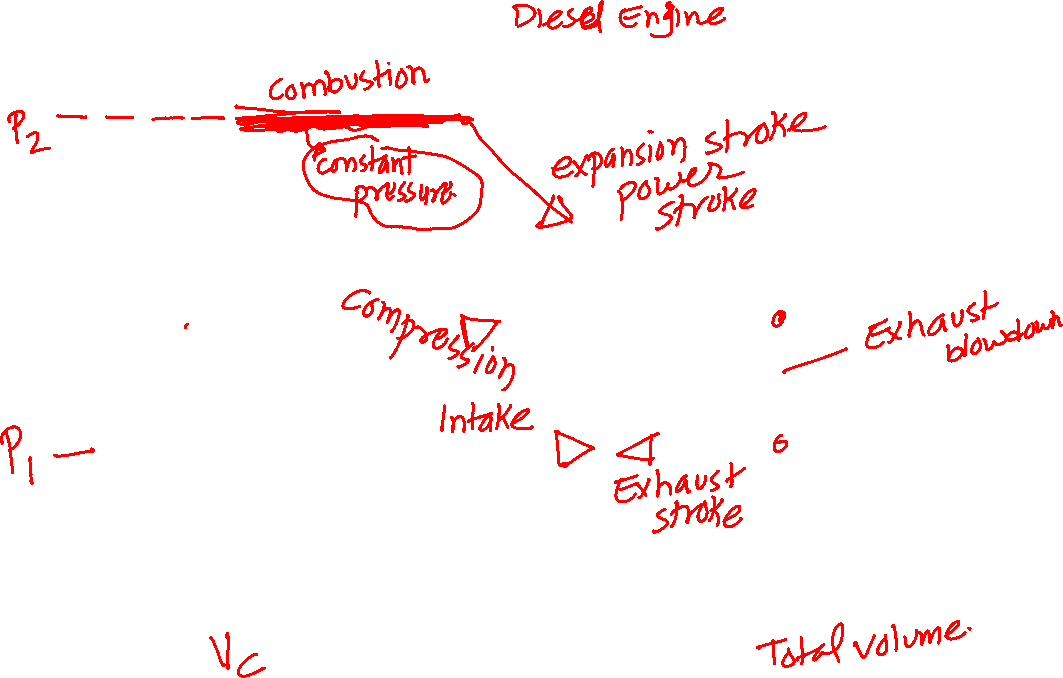 Diesel Engine
Combustion
P2
constant
pressure
expansion stroke
power
stroke
Compression
Exhaust
blowdown
Intake
P1
Exhaust
stroke
Vc
Total volume.